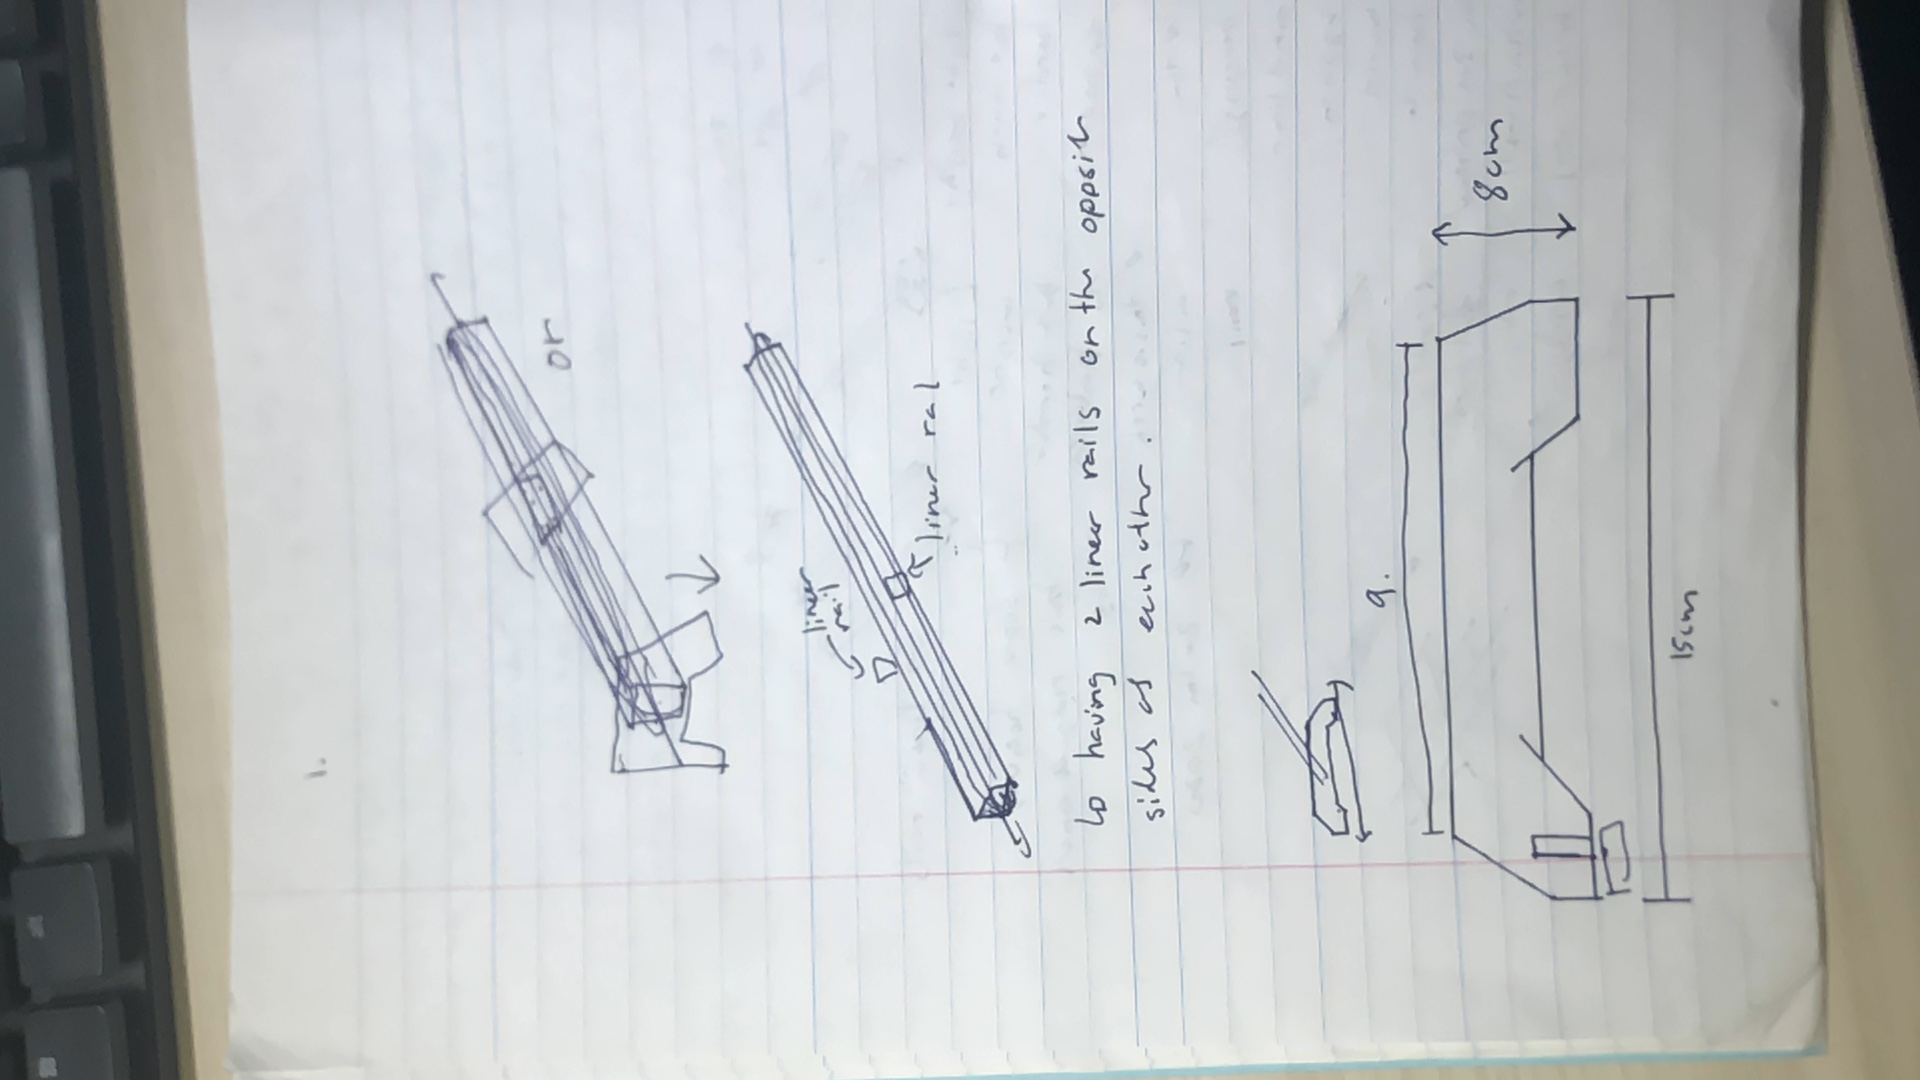 1.
or
linear
rail
liner ral
↳ having 2 linear rails on the opposite
sides of each other.
9.
8cm
15cm